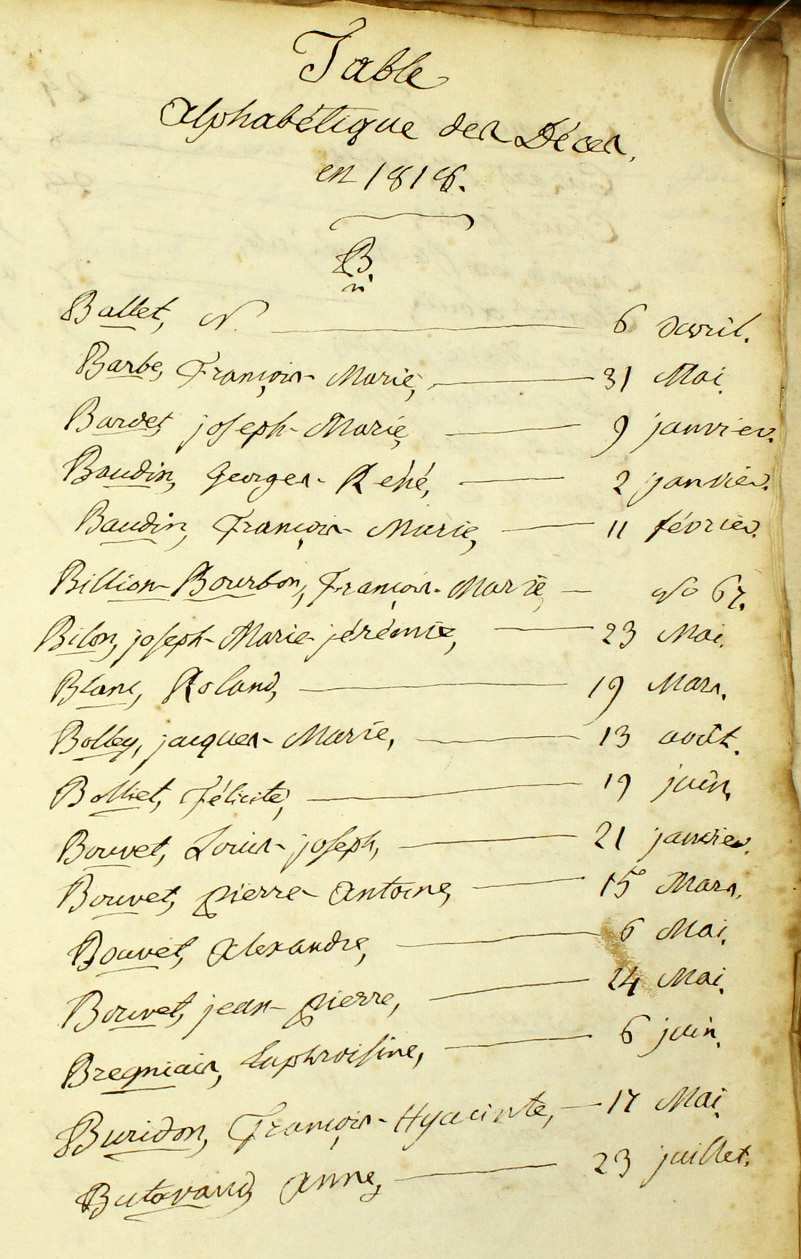 Table
alphabétique des Décès,
en 1818.
B.
Ballet, N. 6 davril.
Barbe, François-Marie, 31 Mai.
Bardet, joseph-Marie, 9 janvier.
Baudin, Georges-René, 2 janvier.
Baudin, François-Marie, 11 février.
Billion-Bourbon, François-Marie, no 67.
Bilon, joseph-Marie-jérémie, 23 Mai.
Blanc, Roland, 19 Mars.
Bolley, jacques-Marie, 13 août.
Bolliet, félicité, 19 juin.
Bouvet, Louis-joseph, 21 janvier.
Bouvet, pierre-Antoine, 15 Mars.
Bouvet, Alexandre, 6 Mai.
Bouvet, jean-pierre, 24 Mai.
Bregniais, Euphroisine, 6 juin.
Buridon, François-Hyacinte, 17 Mai.
Butavand, Anne, 23 juillet.